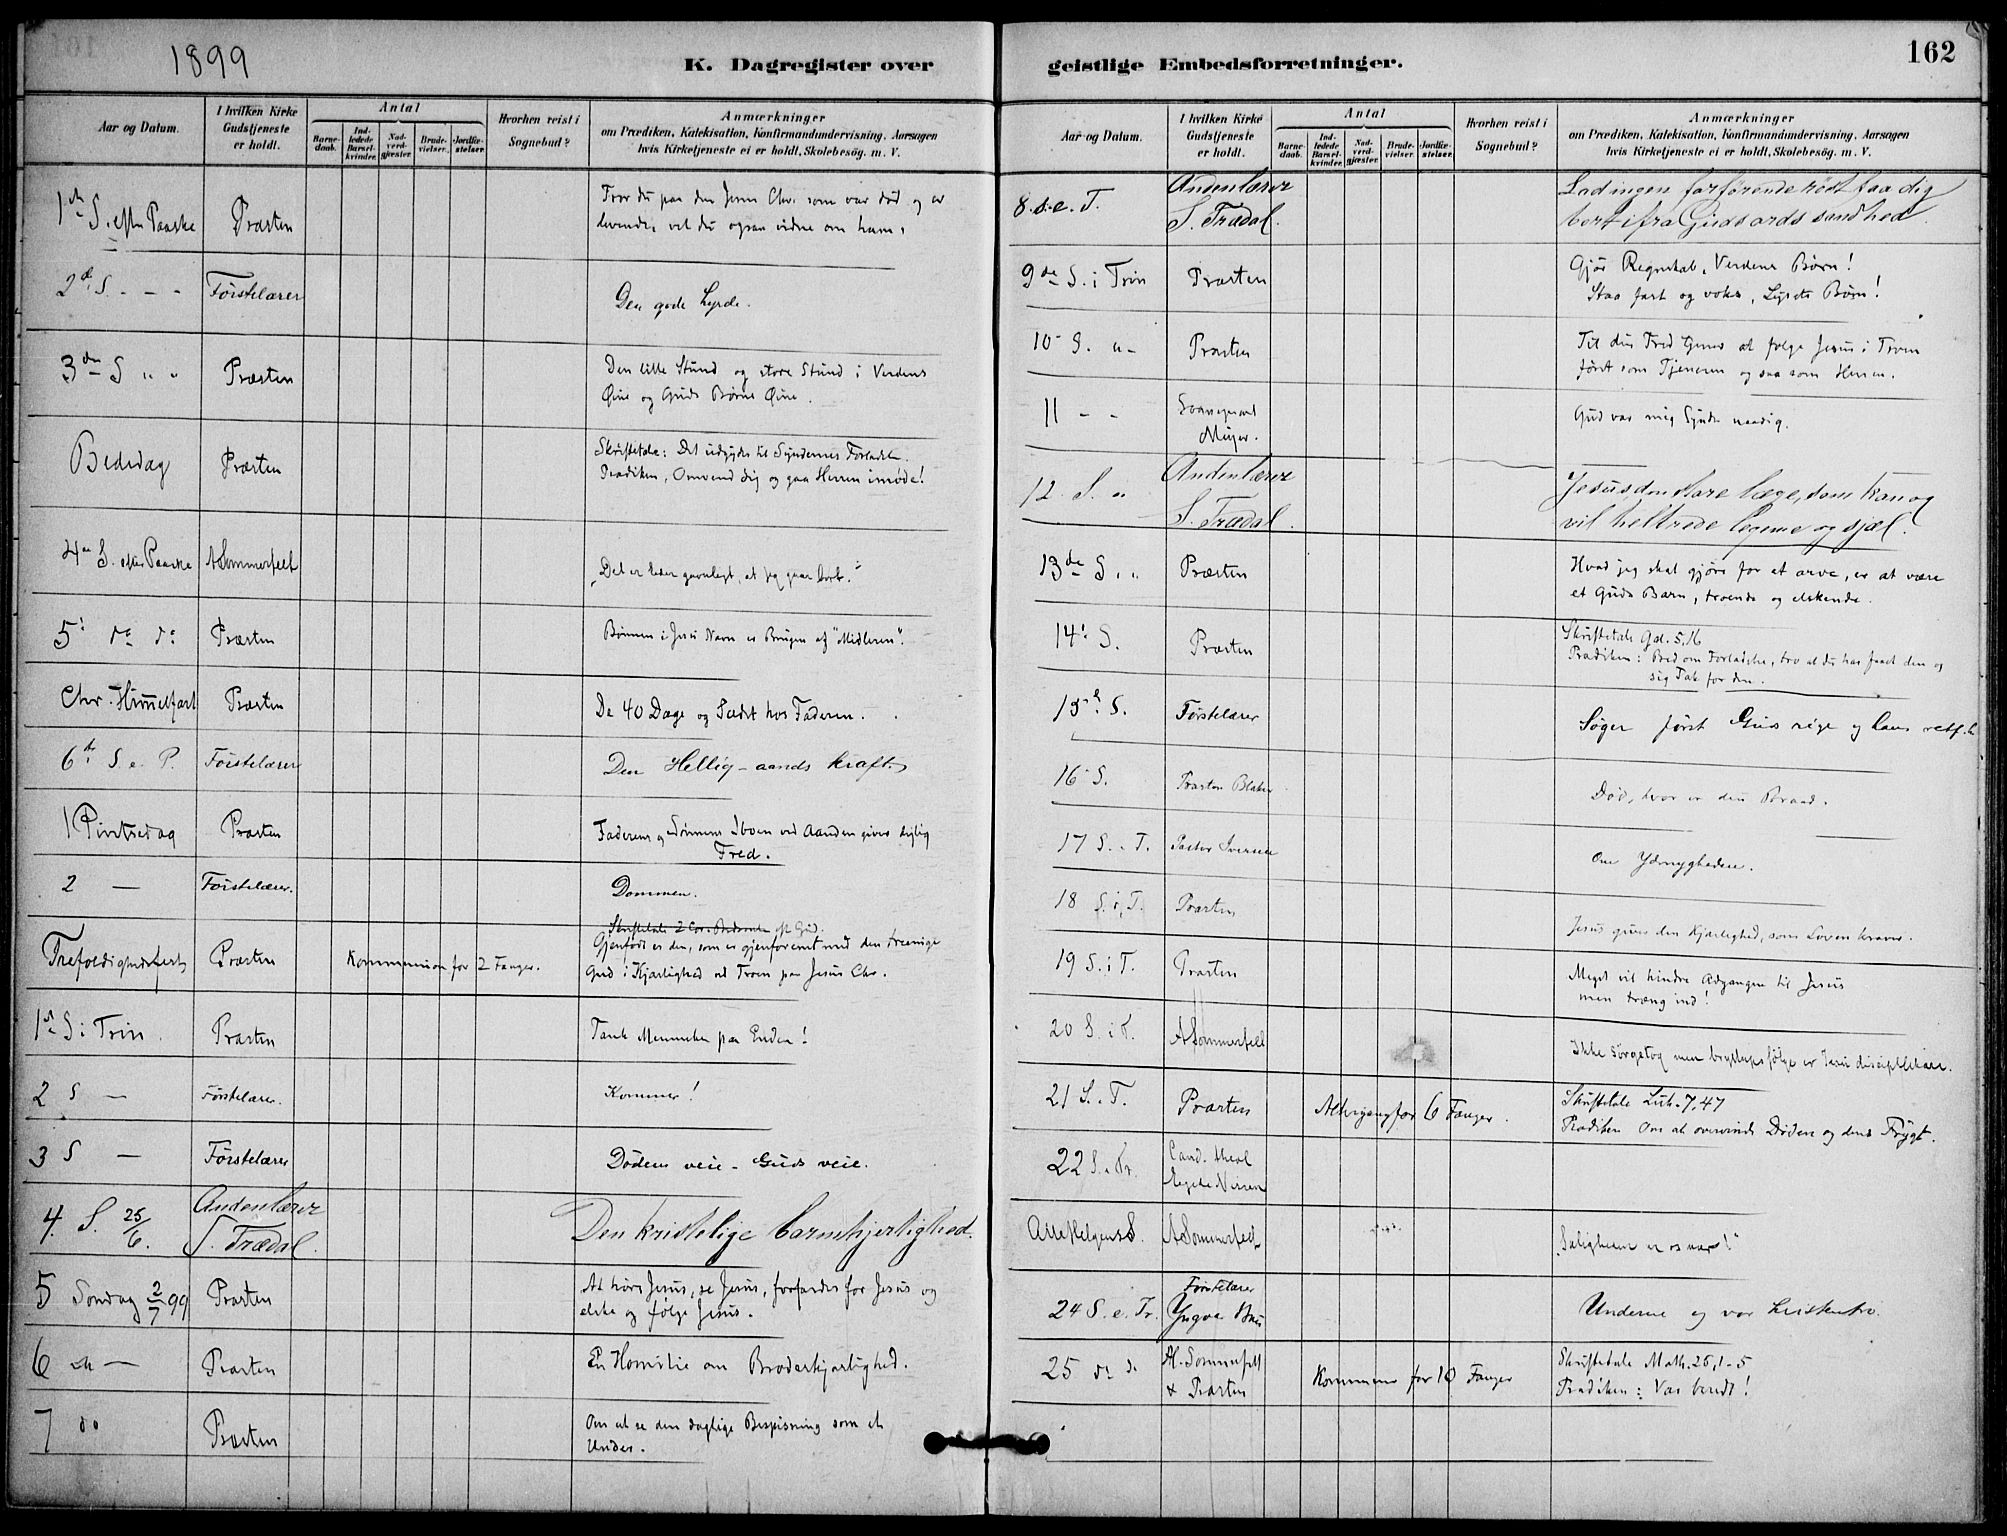 1899
K. Dagregister over
Aar og Datum.
I hvilken Kirke
Gudstjeneste
er holdt.
Antal
Barne-
daab.
Ind-
ledede
Barsel-
kvinder.
Nad-
verd-
gjester.
Brude-
vielser.
Jordfæ-
stelser.
Hvorhen reist i
Sognebud?
Anmærkninger
om Prædiken, Katekisation, Konfirmandundervisning, Aarsagen
hvis Kirketjeneste ei er holdt, Skolebesøg. m. V.
1ste S. efter Paaske Præsten Tror du paa den Jesus Chr. som var død og er
levende, vil du ogsaa vidne om ham.
2den S. - - - Førstelærer Den gode Hyrde.
3die S " " Præsten Den lille Stund og store Stund i Verdens
Øine og Guds Børns Øine.
Bededag Præsten Skriftetale: Det udgydes til Syndernes Forladelse.
Prædiken, Omvend dig og gaa Herren imøde!
4de S. efter Paaske A Sommerfelt "Det er eder gavnligt, at jeg gaar bort."
5te do do Præsten Bønnen i Jesu Navn er Brugen af "Midleren".
Chr. Himmelfart Præsten De 40 Dage og Sædet hos Faderen.
6te S. e. P. Førstelærer Den Hellig-aands kraft.
1 Pintsedag Præsten Faderens og Sønnens Iboen ved Aanden giver deilig
Fred.
2 — Førstelærer. Dommen.
Skriftetale 2 Cor.
Trefoldighedsfest Præsten Kommunion for 2 Fanger. Gjenfødt er den, som er gjenforenet med den treenige
Gud i Kjærlighed ved Troen paa Jesus Chr.
1ste S i Trin. Præsten Tænk Menneske paa Enden!
2 S — Førstelærer. Kommer!
3 S — Førstelærer Dødens veie - Guds veie.
4. S. 25/6. Andenlærer
S. Trædal. Den kristelige barmhjertighed.
5 Søndag 2/7 99 Præsten At høre Jesus, se Jesus, forfærdes for Jesus og
elske og følge Jesus.
6 do — Præsten En Homilie om Broderkjærlighed.
7 do Præsten Om at se den daglige Bespisning som et
Under.
geistlige Embedsforretninger.
162
Aar og Datum.
I hvilken Kirke
Gudstjeneste
er holdt.
Antal
Barne-
daab.
Ind-
ledede
Barsel-
kvinder.
Nad-
verd-
gjester.
Brude-
vielser.
Jordfæ-
stelser.
Hvorhen reist i
Sognebud?
Anmærkninger
om Prædiken, Katekisation, Konfirmandundervisning, Aarsagen
hvis Kirketjeneste ei er holdt, Skolebesøg. m. V.
8.s.e. T. Andenlærer
S. Trædal. Lad ingen forførende røst faa dig
bort ifra Guds ords sandhed.
9de S. i Trin Præsten Gjør Regnskab, Verdens Børn!
Staa fast og voks, Lysets Børn!
10 S. " - Præsten Til din Fred tjener at følge Jesus i Troen
først som Tjeneren og saa som Herren.
11 - - Sogneprest
Meyer. Gud vær mig Synder naadig.
12. S. " Andenlærer
S. Trædal. Jesus den store læge, som kan og
vil helbrede legeme og sjæl.
13de S. " Præsten Hvad jeg skal gjøre for at arve, er at være
et Guds Barn, troende og elskende.
14de S. Præsten Skriftetale Gal. 5,16
Prædiken: Bed om Forladelse, tro at du har faaet den og
sig Tak for den.
15de S. Førstelærer Søger først Guds rige og hans retf.h.
16 S. Præsten Død, hvor er din Braad.
17 S. e. T. Pastor Iversen Om Ydmygheden.
18 S. i T. Præsten Jesus giver den Kjærlighed, som Loven kræver.
19 S. i T. Præsten Meget vil hindre Adgangen til Jesus
men træng ind!
20 S. i T. A Sommerfelt Ikke sørgetog men bryllupsfølge er Jesu discipelskare.
21 S. T. Præsten Altergang for 6 Fanger. Skriftetale Luk. 7,47
Prædiken Om at overvinde Døden og dens Frygt.
22 S. e. Tr. Cand. theol
Egede Nissen
Allehelgens S. A Sommerfelt "Saligheden er os nær!"
24 S. e. Tr. Førstelærer
Yngva Undrene og vor kristentro.
25 do do Al. Sommerfelt
& Præsten Kommunion for 10 Fanger Skriftetale Math. 25,1-5
Prædiken: Vær beredt!